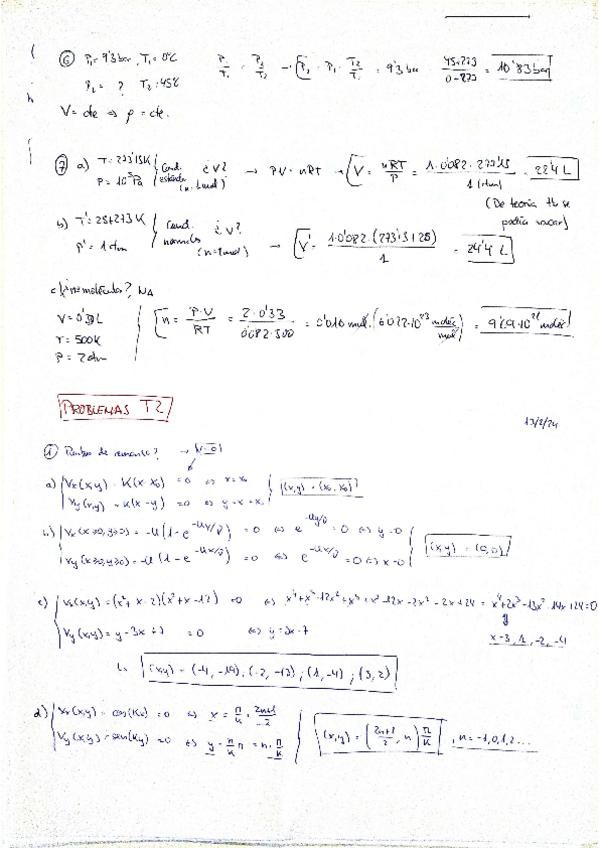 ⑥ P₁ = 9'3 bar , T₁ = 0ºC P₁/T₁ = P₂/T₂ → P₂ = P₁ · T₂/T₁ = 9'3 bar · 45+273/0+273 = 10'83 bar
P₂ = ? T₂ = 45ºC
V = cte ⇒ ρ = cte.
⑦ a) T = 273'15K P = 10⁵ Pa Cond. estándar (n = 1 mol) ¿V? → PV = nRT → V = nRT/P = 1·0'082·273'15/1 (atm) = 22'4 L
(De teoría tb se podría sacar)
b) T' = 25+273 K P' = 1 atm Cond. normales (n = 1 mol) ¿V? → V' = 1·0'082·(273'15+25)/1 = 24'4 L
c) ¿nº moléculas? NA
V = 0'33 L n = P·V/RT = 2·0'33/0'082·500 = 0'016 mol · (6'022·10²³ moléc/mol) = 9'69·10²¹ moléc
T = 500K
P = 2 atm
PROBLEMAS T2
13/2/24
① Puntos de remanso? → v = 0
a) Vx(x,y) = K(x-x₀) = 0 ⇔ x = x₀ (x,y) = (x₀, x₀)
Vy(x,y) = K(x-y) = 0 ⇔ y = x = x₀
b) Vx(x≥0,y≥0) = -U(1-e^-Uy/ν) = 0 ⇔ e^-Uy/ν = 0 ⇔ y = 0 (x,y) = (0,0)
Vy(x≥0,y≥0) = -U(1-e^-Ux/ν) = 0 ⇔ e^-Ux/ν = 0 ⇔ x = 0
c) Vx(x,y) = (x²+x-2)(x²+x-12) = 0 ⇔ x⁴+x³-12x²+x³+x²-12x-2x²-2x+24 = x⁴+2x³-13x²-14x+24=0
Vy(x,y) = y-3x+7 = 0 ⇔ y = 3x-7 x = 3, 1, -2, -4
(x,y) = (-4,-19), (-2,-13); (1,-4); (3,2)
d) Vx(x,y) = cos(Kx) = 0 ⇔ x = π/K · 2n+1/2
Vy(x,y) = sen(Ky) = 0 ⇔ y = π/K n = n·π/K (x,y) = (2n+1/2, n) π/K , n = -1,0,1,2...